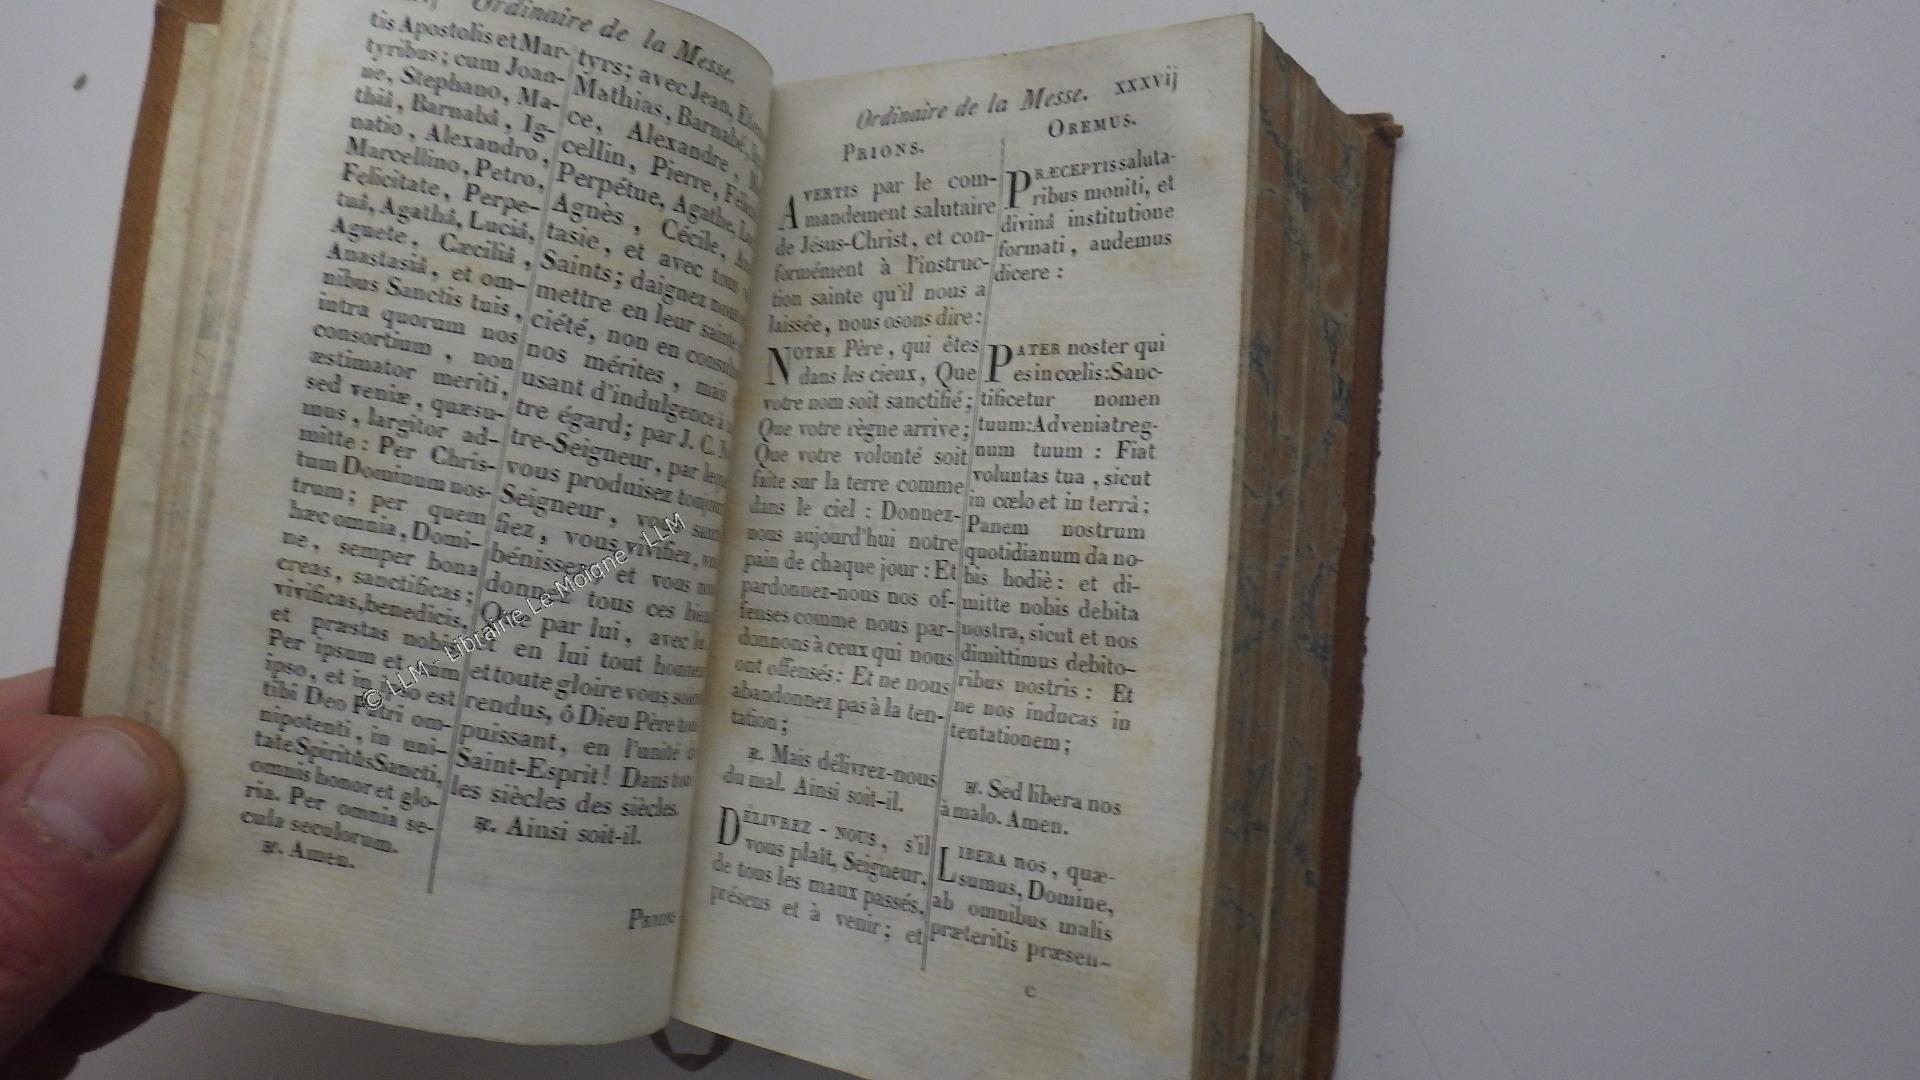 Ordinaire de la Messe.
tis Apostolis et Mar-
tyribus; cum Joan-
ne, Stephano, Ma-
thiâ, Barnabâ, Ig-
natio, Alexandro,
Marcellino, Petro,
Felicitate, Perpe-
tuâ, Agathâ, Luciâ,
Agnete, Cæciliâ,
Anastasiâ, et om-
nibus Sanctis tuis,
intra quorum nos
consortium, non
æstimator meriti,
sed veniæ, quæsu-
mus, largitor ad-
mitte : Per Chris-
tum Dominum nos-
trum; per quem
hæc omnia, Domi-
ne, semper bona
creas, sanctificas;
vivificas, benedicis,
et præstas nobis.
Per ipsum et cum
ipso, et in ipso est
tibi Deo Patri om-
nipotenti, in uni-
tate Spiritûs Sancti,
omnis honor et glo-
ria. Per omnia se-
cula seculorum.
℟. Amen.
tyrs; avec Jean,
Mathias, Barnabé,
ce, Alexandre,
cellin, Pierre,
Perpétue, Agathe,
Agnès, Cécile,
tasie, et avec tous
Saints; daignez nous
mettre en leur sainte
ciété, non en
nos mérites, mais
usant d'indulgence à
tre égard; par J. C.
tre-Seigneur, par
vous produisez
Seigneur,
fiez, vous vivifiez,
bénissez et vous
donnez tous ces
Que par lui, avec
et en lui tout
et toute gloire vous
rendus, ô Dieu Père
puissant, en l'unité
Saint-Esprit! Dans
les siècles des siècles.
℟. Ainsi soit-il.
Prions
Ordinaire de la Messe. xxxvij
Prions.
Avertis par le com-
mandement salutaire
de Jésus-Christ, et con-
formément à l'instruc-
tion sainte qu'il nous a
laissée, nous osons dire :
Notre Père, qui êtes
dans les cieux, Que
votre nom soit sanctifié;
Que votre règne arrive;
Que votre volonté soit
faite sur la terre comme
dans le ciel : Donnez-
nous aujourd'hui notre
pain de chaque jour : Et
pardonnez-nous nos of-
fenses comme nous par-
donnons à ceux qui nous
ont offensés : Et ne nous
abandonnez pas à la ten-
tation;
℟. Mais délivrez-nous
du mal. Ainsi soit-il.
Délivrez-nous, s'il
vous plaît, Seigneur,
de tous les maux passés,
présens et à venir; et
Oremus.
Præceptis saluta-
ribus moniti, et
divinâ institutione
formati, audemus
dicere :
Pater noster qui
es in cœlis : Sanc-
tificetur nomen
tuum : Adveniat reg-
num tuum : Fiat
voluntas tua, sicut
in cœlo et in terrâ;
Panem nostrum
quotidianum da no-
bis hodiè : et di-
mitte nobis debita
nostra, sicut et nos
dimittimus debito-
ribus nostris : Et
ne nos inducas in
tentationem;
℟. Sed libera nos
à malo. Amen.
Libera nos, quæ-
sumus, Domine,
ab omnibus malis
præteritis præsen-
c
© LLM - Librairie Le Moigne - LLM